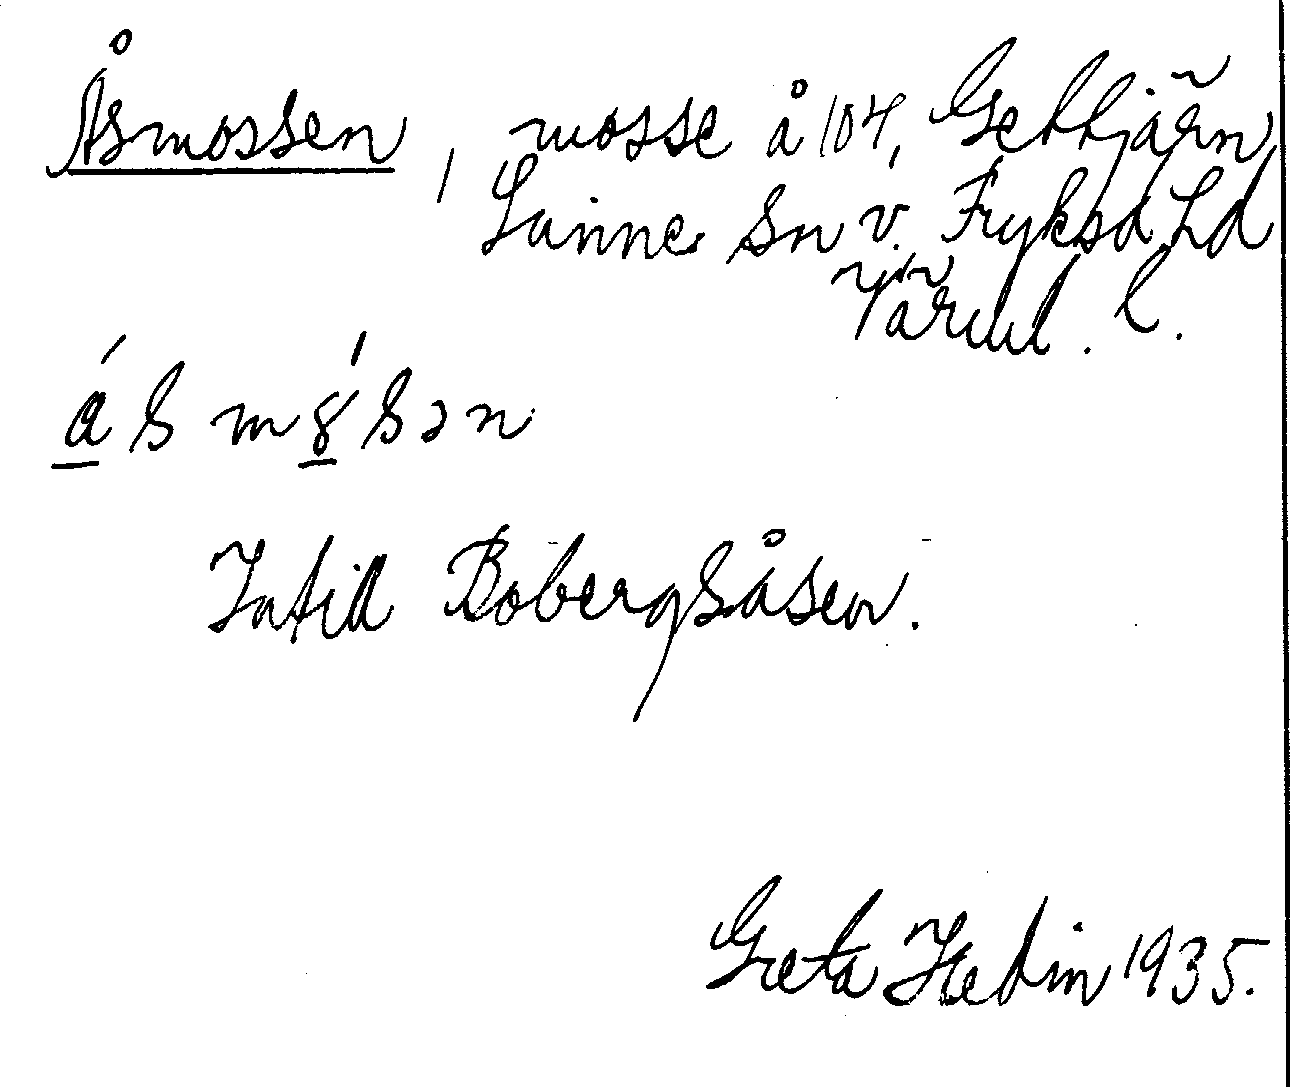 Åsmossen, mosse å 104, Gettjärn,
Sunne Sn V. Fryksd. Hd
Värml. l.
Intill Bobergsåsen.
Greta Hedin 1935.